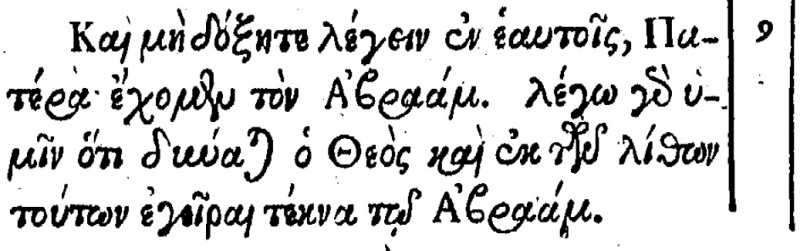 Καὶ μὴ δόξητε λέγειν ἐν ἑαυτοῖς, Πα- 9
τέρα ἔχομεν τὸν Ἀβραάμ. λέγω γὰρ ὑ-
μῖν ὅτι δύναται ὁ Θεὸς καὶ ἐκ τῶν λίθων
τούτων ἐγεῖραι τέκνα τῷ Ἀβραάμ.